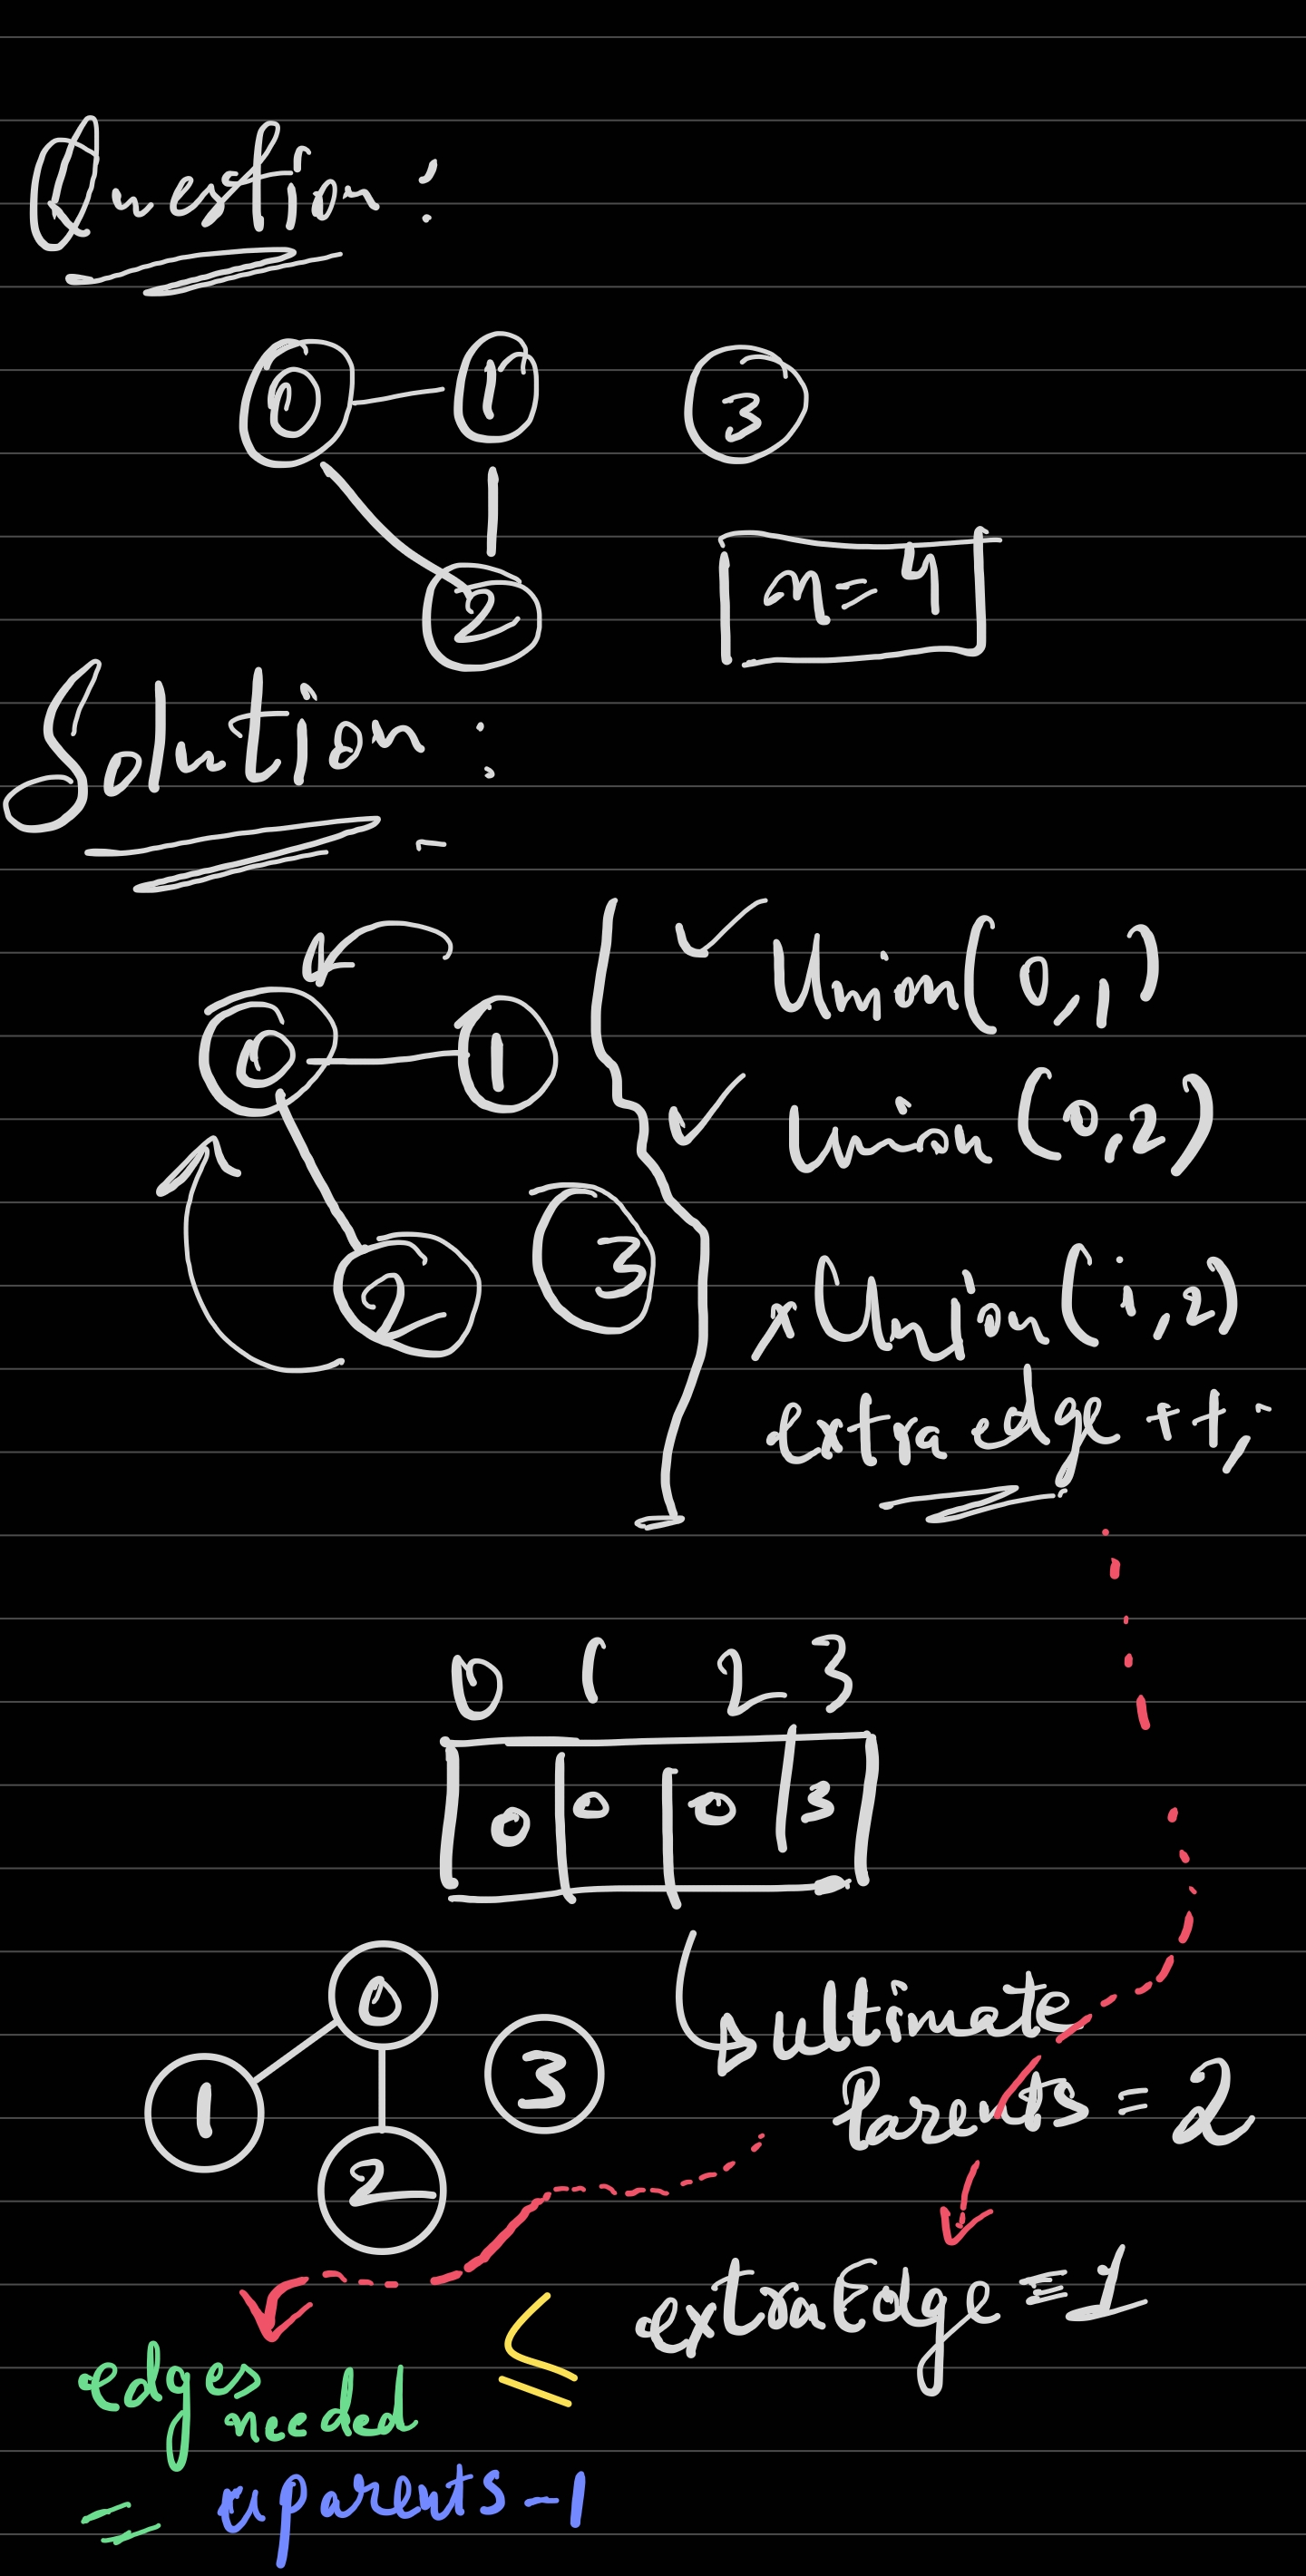 Question:
0 1 3
2 n=4
Solution:
Union(0,1)
0 1
Union(0,2)
2 3
x Union(1,2)
extra edge ++;
0 1 2 3
0 0 0 3
0
ultimate
1 3
Parents = 2
2
extraEdge = 1
≤
edges
needed
= uparents-1